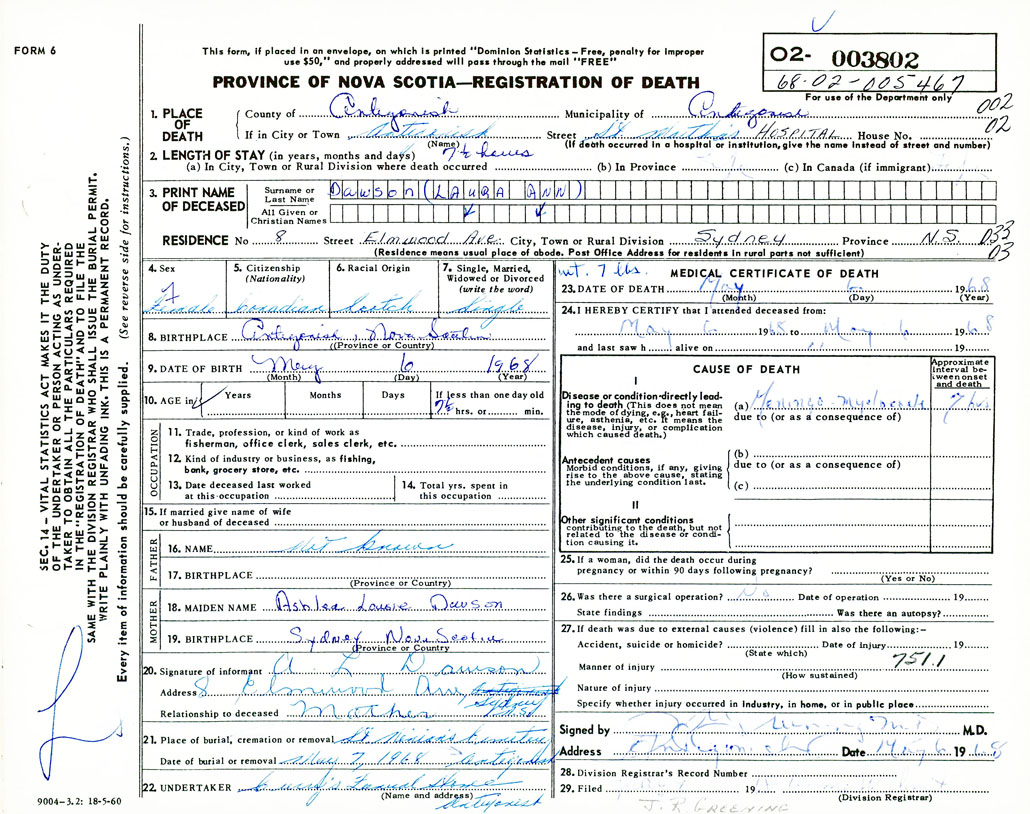 FORM 6
This form, if placed in an envelope, on which is printed "Dominion Statistics – Free, penalty for improper
use $50," and properly addressed will pass through the mail "FREE"
PROVINCE OF NOVA SCOTIA—REGISTRATION OF DEATH
O2- 003802
68-02-005467
For use of the Department only
002
02
1. PLACE OF DEATH
County of Antigonish Municipality of Antigonish
If in City or Town Antigonish Street St. Martha's HOSPITAL House No.
(Name) (If death occurred in a hospital or institution, give the name instead of street and number)
2. LENGTH OF STAY (in years, months and days) 7½ hours
(a) In City, Town or Rural Division where death occurred (b) In Province (c) In Canada (if immigrant)
3. PRINT NAME OF DECEASED
Surname or Last Name Dawson (LAURA ANN)
All Given or Christian Names
RESIDENCE No 8 Street Elmwood Ave. City, Town or Rural Division Sydney Province N.S. 033
03
(Residence means usual place of abode. Post Office Address for residents in rural parts not sufficient)
4. Sex Female
5. Citizenship (Nationality) Canadian
6. Racial Origin Scotch
7. Single, Married, Widowed or Divorced (write the word) Single
8. BIRTHPLACE Antigonish, Nova Scotia
(Province or Country)
9. DATE OF BIRTH May 6 1968
(Month) (Day) (Year)
10. AGE in Years Months Days If less than one day old
7½ hrs. or min.
OCCUPATION
11. Trade, profession, or kind of work as
fisherman, office clerk, sales clerk, etc.
12. Kind of industry or business, as fishing,
bank, grocery store, etc.
13. Date deceased last worked
at this occupation
14. Total yrs. spent in
this occupation
15. If married give name of wife
or husband of deceased
FATHER
16. NAME Not known
17. BIRTHPLACE
(Province or Country)
MOTHER
18. MAIDEN NAME Dawson
19. BIRTHPLACE Sydney Nova Scotia
(Province or Country)
20. Signature of informant A L Dawson
Address 8 Elmwood Ave, Sydney
Relationship to deceased Mother
21. Place of burial, cremation or removal St. Ninian's Cemetery
Date of burial or removal May 7, 1968 Antigonish
22. UNDERTAKER Funeral Home
(Name and address) Antigonish
wt. 7 lbs.
MEDICAL CERTIFICATE OF DEATH
23. DATE OF DEATH May 6 1968
(Month) (Day) (Year)
24. I HEREBY CERTIFY that I attended deceased from:
May 6 1968 to May 6 1968
and last saw h alive on 19
CAUSE OF DEATH
Approximate interval between onset and death
I
Disease or condition directly leading to death (This does not mean the mode of dying, e.g., heart failure, asthenia, etc. It means the disease, injury, or complication which caused death.)
(a) Meningo-Myelocele 7 hrs
due to (or as a consequence of)
Antecedent causes
Morbid conditions, if any, giving rise to the above cause, stating the underlying condition last.
(b)
due to (or as a consequence of)
(c)
II
Other significant conditions
contributing to the death, but not related to the disease or condition causing it.
25. If a woman, did the death occur during
pregnancy or within 90 days following pregnancy?
(Yes or No)
26. Was there a surgical operation? No Date of operation 19
State findings Was there an autopsy?
27. If death was due to external causes (violence) fill in also the following:–
Accident, suicide or homicide? Date of injury 19
(State which)
751.1
Manner of injury
(How sustained)
Nature of injury
Specify whether injury occurred in Industry, in home, or in public place
Signed by M.D.
Address Antigonish Date May 6 1968
28. Division Registrar's Record Number
29. Filed 19
(Division Registrar)
J. R. GREENING
SEC. 14 – VITAL STATISTICS ACT MAKES IT THE DUTY
OF THE UNDERTAKER OR PERSON ACTING AS UNDER-
TAKER TO OBTAIN ALL THE PARTICULARS REQUIRED
IN THE "REGISTRATION OF DEATH" AND TO FILE THE
SAME WITH THE DIVISION REGISTRAR WHO SHALL ISSUE THE BURIAL PERMIT.
WRITE PLAINLY WITH UNFADING INK. THIS IS A PERMANENT RECORD.
Every item of information should be carefully supplied. (See reverse side for instructions.)
9004-3.2: 18-5-60